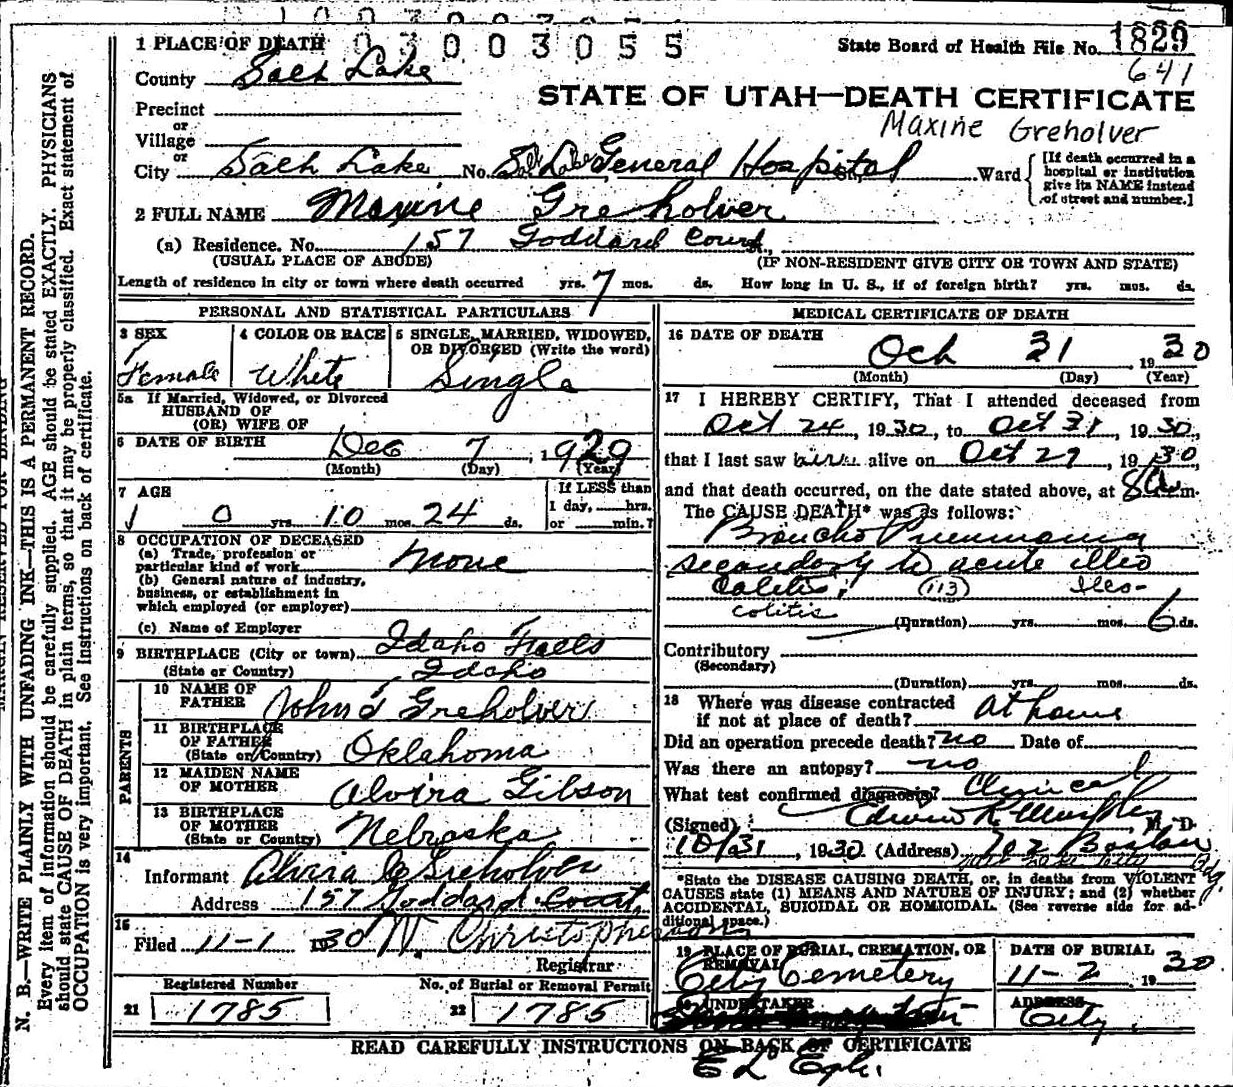 03003055
State Board of Health File No. 1829
641
STATE OF UTAH—DEATH CERTIFICATE
Maxine Greholver
1 PLACE OF DEATH
County Salt Lake
Precinct
or
Village
or
City Salt Lake No. Salt Lake General Hospital St., Ward
[If death occurred in a
hospital or institution
give its NAME instead
of street and number.]
2 FULL NAME Maxine Greholver
(a) Residence. No. 157 Goddard Court
(USUAL PLACE OF ABODE) (IF NON-RESIDENT GIVE CITY OR TOWN AND STATE)
Length of residence in city or town where death occurred yrs. 7 mos. ds. How long in U. S., if of foreign birth? yrs. mos. ds.
PERSONAL AND STATISTICAL PARTICULARS
3 SEX
Female
4 COLOR OR RACE
White
5 SINGLE, MARRIED, WIDOWED,
OR DIVORCED (Write the word)
Single
5a If Married, Widowed, or Divorced
HUSBAND OF
(OR) WIFE OF
6 DATE OF BIRTH Dec 7, 1929
(Month) (Day) (Year)
7 AGE
0 yrs. 10 mos. 24 ds.
If LESS than
1 day, hrs.
or min.?
8 OCCUPATION OF DECEASED
(a) Trade, profession or
particular kind of work None
(b) General nature of industry,
business, or establishment in
which employed (or employer)
(c) Name of Employer
9 BIRTHPLACE (City or town) Idaho Falls
(State or Country) Idaho
PARENTS
10 NAME OF
FATHER John T Greholver
11 BIRTHPLACE
OF FATHER
(State or Country) Oklahoma
12 MAIDEN NAME
OF MOTHER Alvira Gibson
13 BIRTHPLACE
OF MOTHER
(State or Country) Nebraska
14
Informant Alvira C Greholver
Address 157 Goddard Court
15
Filed 11-1 1930 W. Christopherson
Registrar
Registered Number
21 1785
No. of Burial or Removal Permit
22 1785
MEDICAL CERTIFICATE OF DEATH
16 DATE OF DEATH
Oct 31, 1930
(Month) (Day) (Year)
17 I HEREBY CERTIFY, That I attended deceased from
Oct 24, 1930, to Oct 31, 1930,
that I last saw him alive on Oct 29, 1930
and that death occurred, on the date stated above, at 8 a.m.
The CAUSE DEATH* was as follows:
Broncho Pneumonia
secondary to acute illeo
Colitis. (113) Ileo-
colitis
(Duration) yrs. mos. 6 ds.
Contributory
(Secondary)
(Duration) yrs. mos. ds.
18 Where was disease contracted
if not at place of death? at home
Did an operation precede death? no Date of
Was there an autopsy? no
What test confirmed diagnosis? Clinical
(Signed) Edwin R Murphy M. D.
10/31, 1930 (Address) 702 Boston
Bldg.
*State the DISEASE CAUSING DEATH, or, in deaths from VIOLENT
CAUSES state (1) MEANS AND NATURE OF INJURY; and (2) whether
ACCIDENTAL, SUICIDAL OR HOMICIDAL. (See reverse side for ad-
ditional space.)
19 PLACE OF BURIAL, CREMATION, OR
REMOVAL
City Cemetery
DATE OF BURIAL
11-2 1930
20 UNDERTAKER
ADDRESS
City.
READ CAREFULLY INSTRUCTIONS ON BACK OF CERTIFICATE
MARGIN RESERVED FOR BINDING
N. B.—WRITE PLAINLY WITH UNFADING INK—THIS IS A PERMANENT RECORD.
Every item of information should be carefully supplied. AGE should be stated EXACTLY. PHYSICIANS
should state CAUSE OF DEATH in plain terms, so that it may be properly classified. Exact statement of
OCCUPATION is very important. See instructions on back of certificate.